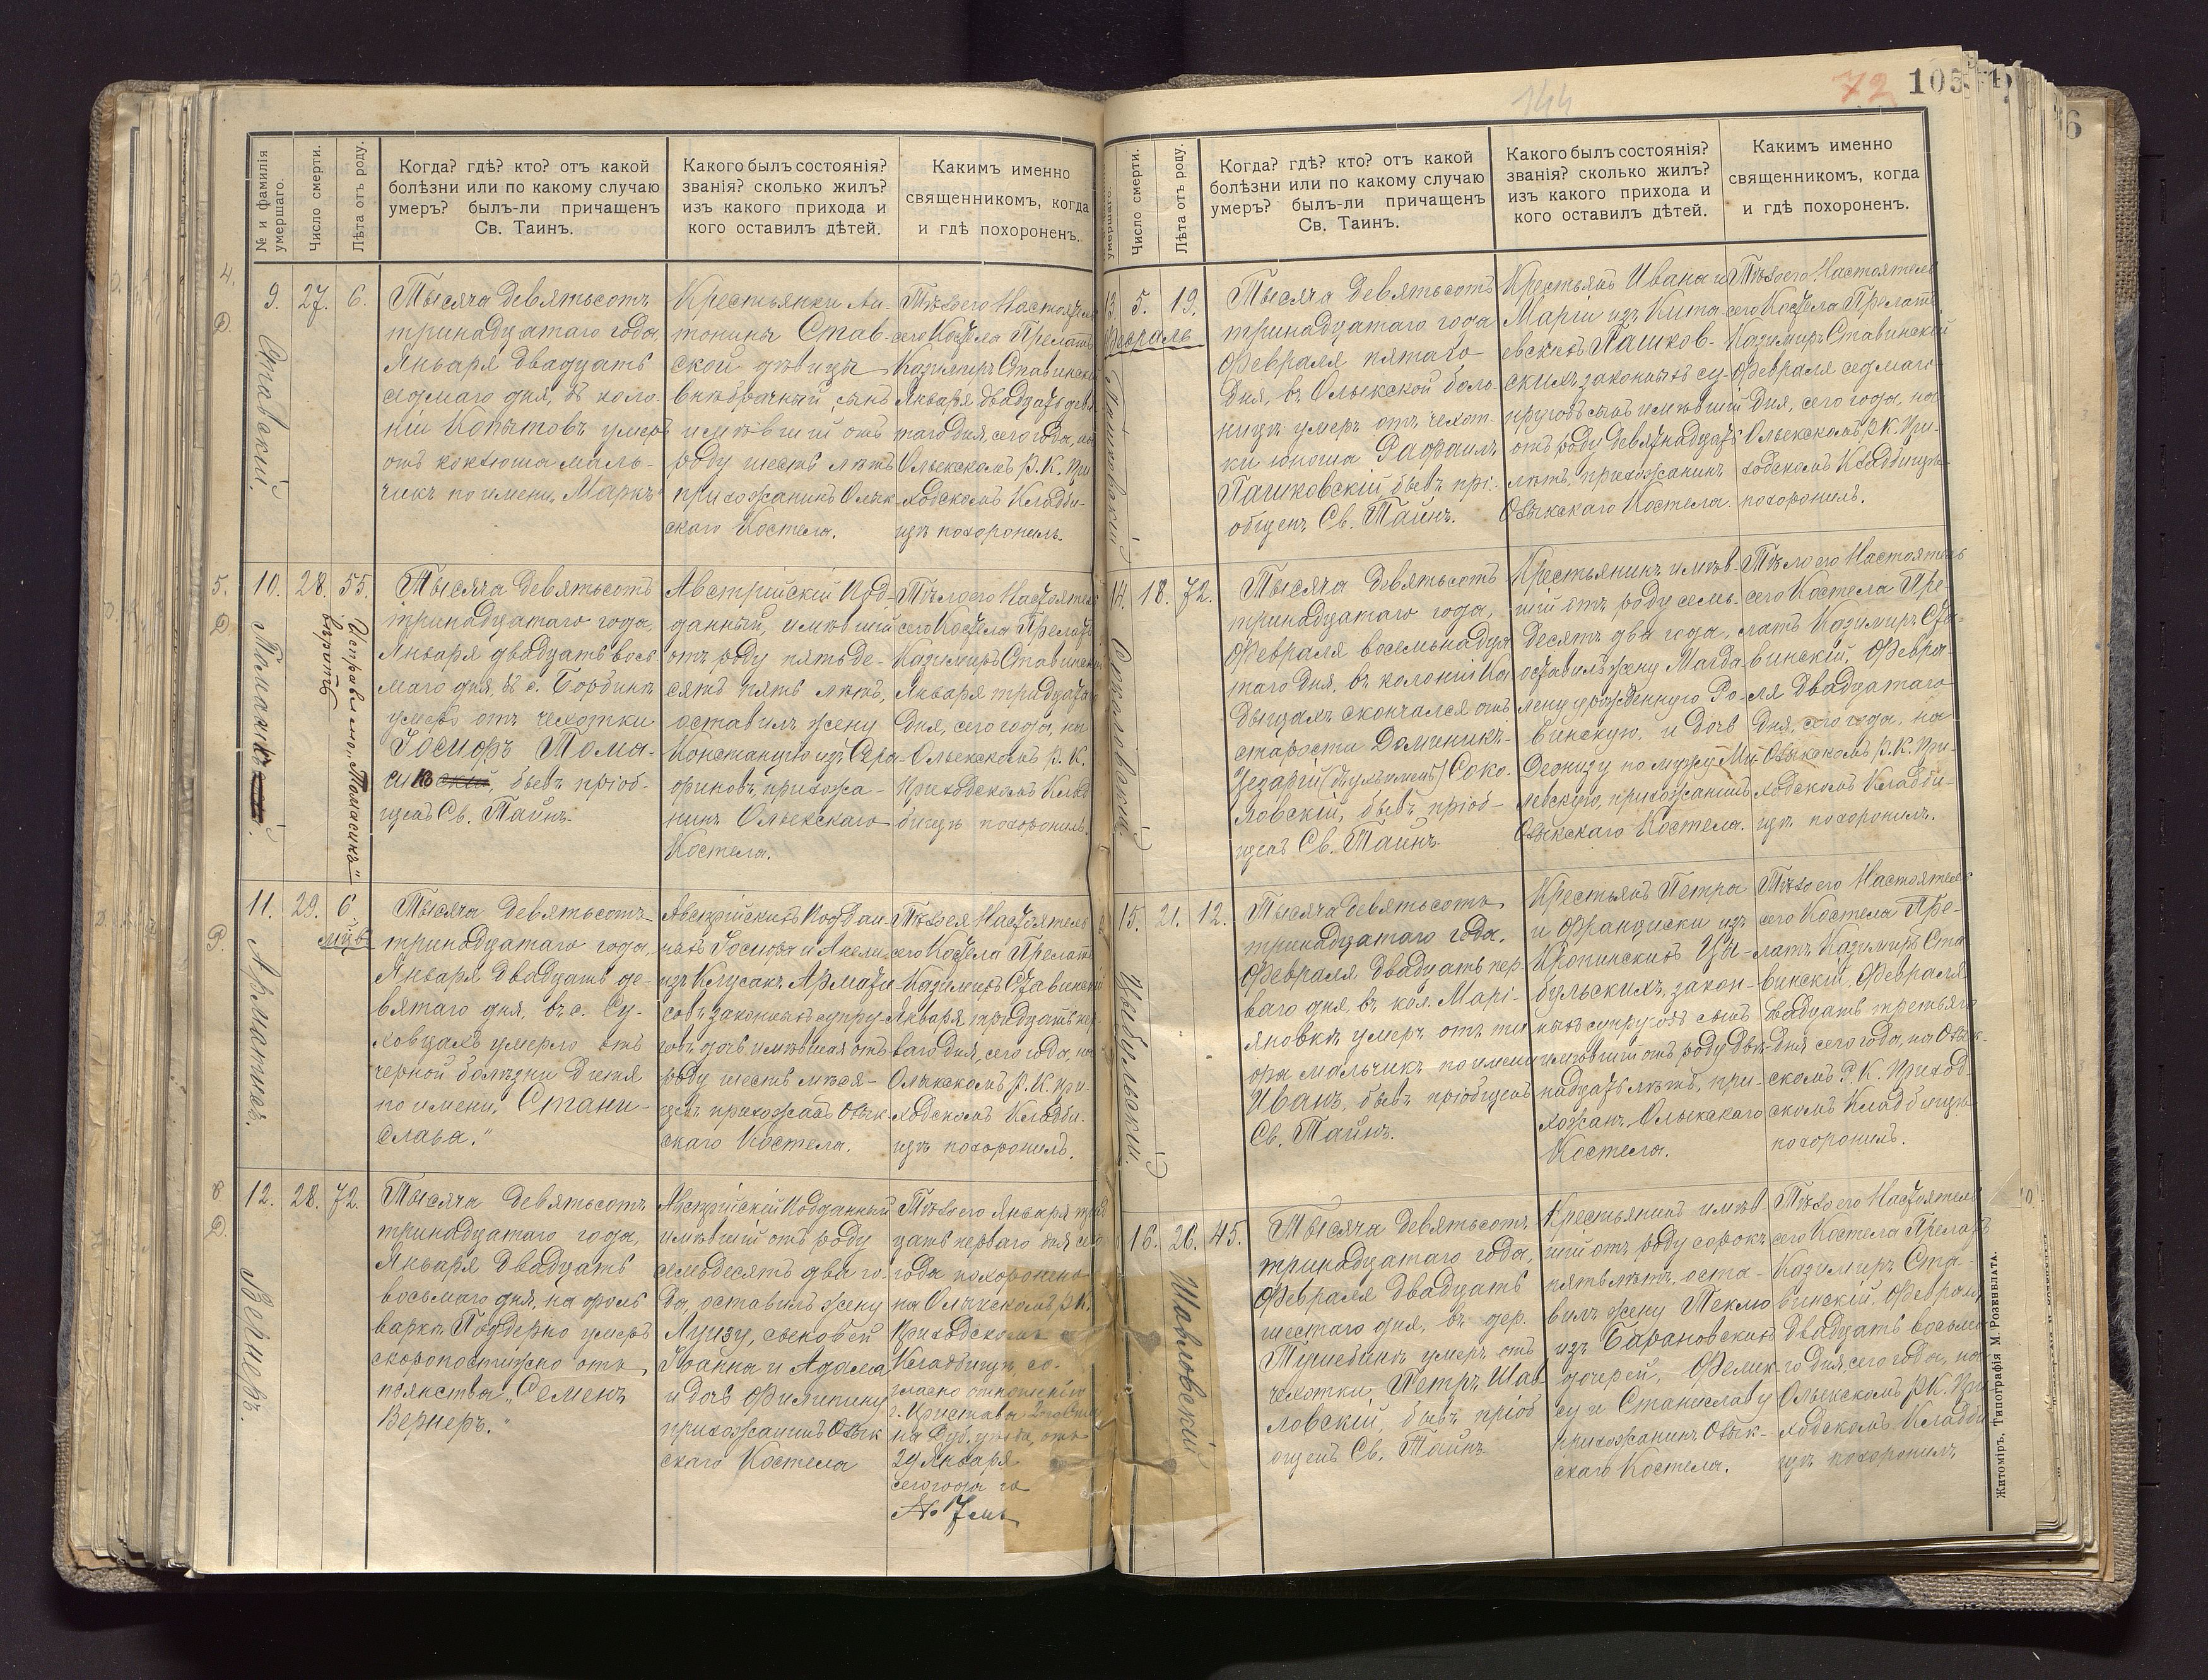 № и фамилія умершаго.
Число смерти.
Лѣта отъ роду.
Когда? гдѣ? кто? отъ какой
болѣзни или по какому случаю
умеръ? былъ-ли причащенъ
Св. Таинъ.
Какого былъ состоянія?
званія? сколько жилъ?
изъ какого прихода и
кого оставилъ дѣтей.
Какимъ именно
священникомъ, когда
и гдѣ похороненъ.
4.
D.
9. Ставскій.
27.
6.
Тысяча девятьсотъ
тринадцатаго года,
Января двадцать
седмаго дня, въ коло-
ніи Копытовъ умеръ
отъ коклюша маль-
чикъ по имени „Маркъ"
Крестьянки Ан-
тонины Став-
ской дѣвицы
внѣбрачный сынъ
имѣвшій отъ
роду шесть лѣтъ
прихожанинъ Олык-
скаго Костела.
Тѣло его Настоятель
сего Костела Прелатъ
Казимиръ Ставинскій
Января двадцать девя-
таго дня, сего года, на
Олыкскомъ Р. К. При-
ходскомъ Кладби-
щѣ похоронилъ.
5.
D
10. Томасикъ
28.
55.
Исправленно „Томасикъ"
вѣрить
Тысяча девятьсотъ
тринадцатаго года,
Января двадцать вось-
маго дня, въ с. Борбинъ
умеръ отъ чехотки
Іосифъ Тома-
сикъ, бывъ пріоб-
щенъ Св. Тайнъ.
Австрійскій Под-
данный, имѣвшій
отъ роду пятьде-
сятъ пять лѣтъ,
оставилъ жену
Констанцію изъ Сера-
финовъ, прихожа-
нинъ Олыкскаго
Костела.
Тѣло его Настоятель
сего Костела Прелатъ
Казимиръ Ставинскій
Января тридцатаго
дня, сего года, на
Олыкскомъ Р. К.
Приходскомъ Клад-
бищѣ похоронилъ.
P.
11. Арматысъ.
29.
6.
мѣсъ
Тысяча девятьсотъ
тринадцатаго года,
Января двадцать де-
вятаго дня, въ с. Су-
ховцахъ умерло отъ
черной болѣзни дитя
по имени „Стани-
слава."
Австрійскихъ Поддан-
ныхъ Іосифа и Анели
изъ Клусакъ Армати-
совъ законныхъ супру-
говъ дочь имѣвшая отъ
роду шесть мѣся-
цевъ прихожанъ Олык-
скаго Костела.
Тѣло ея Настоятель
сего Костела Прелатъ
Казимиръ Ставинскій
Января тридцать пер-
ваго дня, сего года, на
Олыкскомъ Р. К. При-
ходскомъ Кладби-
щѣ похоронилъ.
D.
12. Вернеръ.
28.
72.
Тысяча девятьсотъ
тринадцатаго года,
Января двадцать
восьмаго дня, на фоль-
варкѣ Поддерно умеръ
скоропостижно отъ
пьянства „Семенъ
Вернеръ."
Австрійскій Подданный
имѣвшій отъ роду
семьдесятъ два го-
да, оставилъ жену
Луизу, сыновей
Іоанна и Адама
и дочь Филипину
прихожанинъ Олык
скаго Костела
Тѣло его Января трид-
цать перваго дня сего
года похоронено
на Олыкскомъ Р. К.
Приходскомъ
Кладбищѣ, со-
гласно отношенію
г. Пристава 2
на Дуб. уѣзда, отъ
29 Января
сего года за
№ 7 мъ
144
72
105
умершаго.
Число смерти.
Лѣта отъ роду.
Когда? гдѣ? кто? отъ какой
болѣзни или по какому случаю
умеръ? былъ-ли причащенъ
Св. Таинъ.
Какого былъ состоянія?
званія? сколько жилъ?
изъ какого прихода и
кого оставилъ дѣтей.
Какимъ именно
священникомъ, когда
и гдѣ похороненъ.
6
13. Пашковскій
5.
19.
Февраль
Тысяча девятьсотъ
тринадцатаго года
Февраля пятаго
дня, въ Олыкской боль-
ницѣ умеръ отъ чехот-
ки юноша Рафаилъ
Пашковскій бывъ прі-
общенъ Св. Тайнъ.
Крестьянъ Ивана и
Маріи изъ Кита-
евскихъ Пашков-
скихъ законныхъ су-
пруговъ сынъ имѣвшій
отъ роду девятнадцать
лѣтъ, прихожанинъ
Олыкскаго Костела.
Тѣло его Настоятель
сего Костела Прелатъ
Казимиръ Ставинскій
Февраля седмаго
дня, сего года, на
Олыкскомъ Р. К. При-
ходскомъ Кладбищѣ
похоронилъ.
14. Соколовскій
18.
72.
Тысяча девятьсотъ
тринадцатаго года,
Февраля восемьнадца
таго дня, въ колоніи Ка
дыщахъ скончался отъ
старости Доминикъ-
Цезарій (двухъименъ) Соко-
ловскій, бывъ пріоб-
щенъ Св. Тайнъ.
Крестьянинъ имѣв-
шій отъ роду семь-
десятъ два года,
оставилъ жену Магда-
лену урожденную Ро-
винскую, и дочь
Деонизу по мужу Ми-
левскую, прихожанинъ
Олыкскаго Костела.
Тѣло его Настоятель
сего Костела Пре-
латъ Казимиръ Ста-
винскій, Февра-
ля двадцатаго
дня, сего года, на
Олыкскомъ Р. К. При-
ходскомъ Кладби-
щѣ похоронилъ.
15. Цыбульскій.
21.
12.
Тысяча девятьсотъ
тринадцатаго года,
Февраля двадцать пер-
ваго дня, въ кол. Марі-
яновкѣ умеръ отъ ти
фа мальчикъ по имени
Иванъ, бывъ пріобщенъ
Св. Тайнъ.
Крестьянъ Петра
и Францишки изъ
Кропинскихъ Цы-
бульскихъ, закон-
ныхъ супруговъ сынъ
имѣвшій отъ роду двѣ-
надцать лѣтъ, при-
хожанъ Олыкскаго
Костела.
Тѣло его Настоятель
сего Костела Пре-
латъ Казимиръ Ста
винскій, Февраля
двадцать третьяго
дня сего года, на Олык-
скомъ Р. К. Приход-
скомъ Кладбищѣ
похоронилъ.
16. Шавловскій
26.
45.
Тысяча девятьсотъ
тринадцатаго года,
Февраля двадцать
шестаго дня, въ дер.
умеръ отъ
чехотки, Петръ Шав
ловскій, бывъ пріоб
щенъ Св. Тайнъ
Крестьянинъ имѣв-
шій отъ роду сорокъ
пять лѣтъ, оста-
вилъ жену Теклю
изъ Барановскихъ
дочерей, Фелик-
су и Станиславу
прихожанинъ Олык-
скаго Костела.
Тѣло его Настоятель
сего Костела Прелатъ
Казимиръ Ста-
винскій, Февраля
двадцать восьма-
го дня, сего года, на
Олыкскомъ Р. К. При-
ходскомъ Кладби
щѣ похоронилъ
10.
Житомiръ, Типографія М. Розенблата.